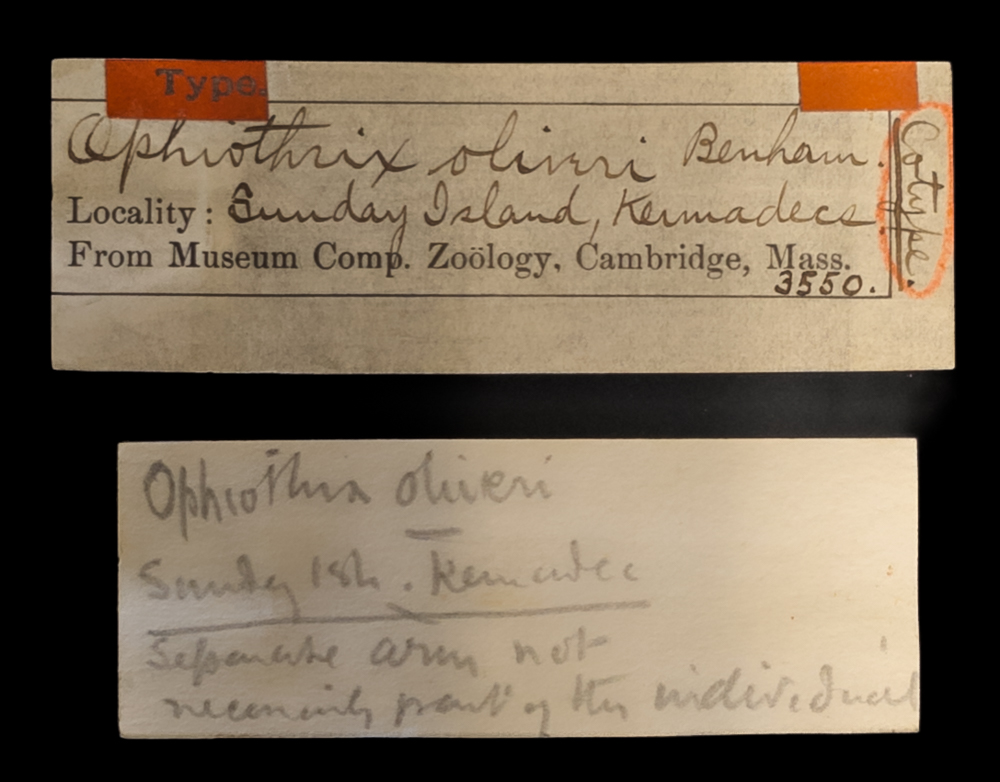 Type.
Ophiothrix oliveri Benham.
Cotype.
Locality: Sunday Island, Kermadecs.
From Museum Comp. Zoölogy, Cambridge, Mass.
3550.
Ophiothrix oliveri
Sunday Isld. Kermadec
Separate arm not
necessarily part of this individual